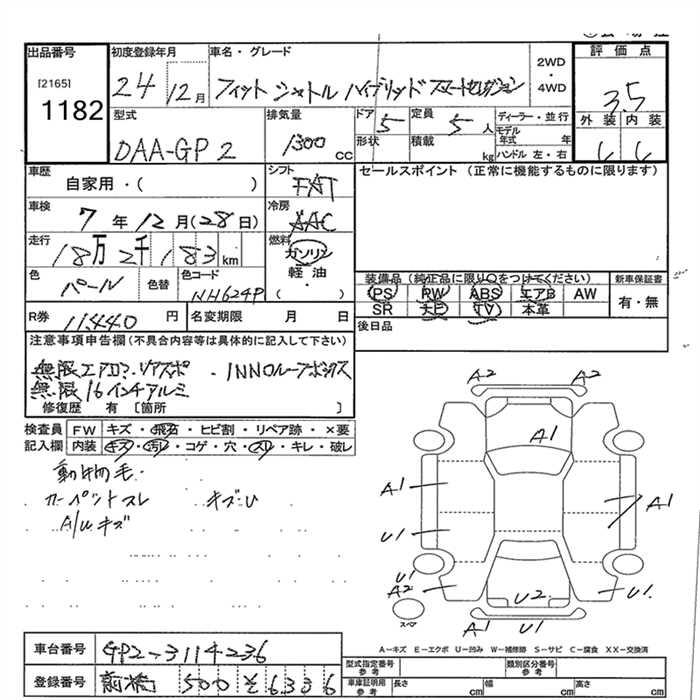 出品番号
[2165]
1182
初度登録年月
24 12月
車名・グレード
フィット シャトル ハイブリッド スマートセレクション
2WD
・
4WD
評価点
3.5
外装 内装
型式
DAA-GP2
排気量
1300 cc
ドア 5
形状
定員 5 人
積載 kg
ディーラー・並行
モデル年式 年
ハンドル 左・右
車歴
自家用・( )
シフト
FAT
セールスポイント (正常に機能するものに限ります)
車検
7年12月(28日)
冷房
AAC
走行
18万2千183km
燃料
ガソリン
軽油・
( )
色
パール
色替
色コード
NH624P
装備品 (純正品に限り○をつけてください)
PS PW ABS エアB AW
SR ナビ TV 本革
新車保証書
有・無
R券 11,440 円
名変期限 月 日
後日品
注意事項申告欄 (不具合内容等は具体的に記入して下さい)
無限エアロ、リアスポ ・INNOルーフボックス
無限16インチアルミ
修復歴 有 [箇所 ]
検査員
記入欄
FW キズ・飛石・ヒビ割・リペア跡・×要
内装 キズ・汚レ・コゲ・穴・スレ・キレ・破レ
動物毛・
カーペットスレ キズU
A/Uキズ
A2 A2
A1
A1 A1
U1
U1
A2 U2 U1
スペア
A1 U1
A-キズ E-エクボ U-凹み W-補修跡 S-サビ C-腐食 XX-交換済
車台番号 GP2-3114236
登録番号 前橋 500 そ 6336
型式指定番号
参考
類別区分番号
参考
車庫証明用
参考
長さ cm 幅 cm 高さ cm